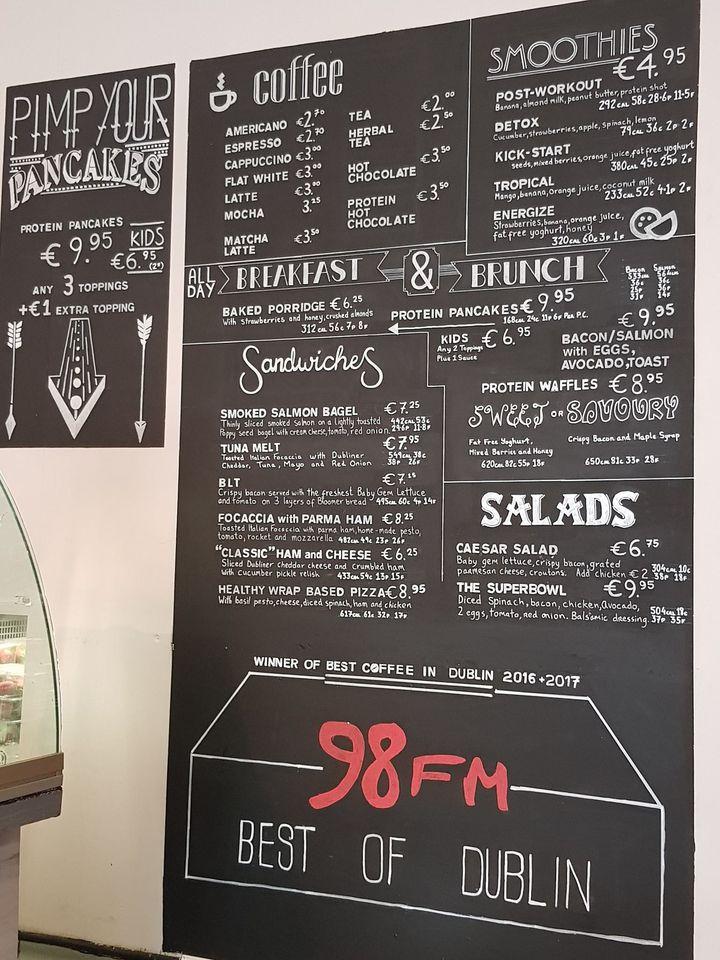 PIMP YOUR
PANCAKES
PROTEIN PANCAKES
€9.95 KIDS
€6.95
ANY 3 TOPPINGS
+€1 EXTRA TOPPING
coffee
AMERICANO €2.70
ESPRESSO €2.70
CAPPUCCINO €3.00
FLAT WHITE €3.00
LATTE €3.00
MOCHA 3.25
MATCHA
LATTE €3.50
TEA €2.00
HERBAL
TEA €2.50
HOT
CHOCOLATE €3.50
PROTEIN
HOT
CHOCOLATE €3.50
SMOOTHIES
€4.95
POST-WORKOUT
Banana, almond milk, peanut butter, protein shot
292CAL 58C 28.6P 11.5F
DETOX
Cucumber, strawberries, apple, spinach, lemon
79CAL 36C 2P 2F
KICK-START
seeds, mixed berries, orange juice, fat free yoghurt
380CAL 45C 25P 2F
TROPICAL
Mango, banana, orange juice, coconut milk
233CAL 52C 4.1P 2F
ENERGIZE
Strawberries, banana, orange juice,
fat free yoghurt, honey
320CAL 60C 3P 1F
ALL DAY BREAKFAST & BRUNCH
BAKED PORRIDGE €6.25
With strawberries and honey, crushed almonds
312CAL 56C 7P 8F
PROTEIN PANCAKES €9.95
168CAL 24C 11P 6F Per P.C.
KIDS €6.95
Any 2 Toppings
Plus 1 Sauce
Bacon Salmon
€9.95
BACON/SALMON
with EGGS,
AVOCADO, TOAST
PROTEIN WAFFLES €8.95
SWEET OR SAVOURY
Fat Free Yoghurt,
Mixed Berries and Honey
620CAL 82C 55P 18F
Crispy Bacon and Maple Syrup
650CAL 81C 33P 28F
Sandwiches
SMOKED SALMON BAGEL €7.25
Thinly sliced smoked Salmon on a lightly toasted 442CAL 53C
Poppy seed bagel with cream cheese, tomato, red onion. 29.6P 11.8F
TUNA MELT €7.95
Toasted Italian Focaccia with Dubliner 549CAL 38C
Cheddar, Tuna, Mayo and Red Onion 38P 26F
BLT €7.15
Crispy bacon served with the freshest Baby Gem Lettuce
and tomato on 3 layers of Bloomer bread 493CAL 60C 4P 14F
FOCACCIA with PARMA HAM €8.25
Toasted Italian Focaccia with parma ham, home-made pesto,
tomato, rocket and mozzarella 482CAL 49C 23P 26F
"CLASSIC" HAM and CHEESE €6.25
Sliced Dubliner cheddar cheese and Crumbled ham
with cucumber pickle relish 433CAL 54C 13P 15F
HEALTHY WRAP BASED PIZZA €8.95
With basil pesto, cheese, diced spinach, ham and chicken
617CAL 61C 32P 17F
SALADS
CAESAR SALAD €6.75
Baby gem lettuce, crispy bacon, grated
parmesan cheese, croutons. Add chicken €2 304CAL 10C 38P 18F
THE SUPERBOWL €9.95
Diced Spinach, bacon, chicken, avocado,
2 eggs, tomato, red onion. Balsmic dressing. 504CAL 18C 37P 35F
WINNER OF BEST COFFEE IN DUBLIN 2016+2017
98FM
BEST OF DUBLIN